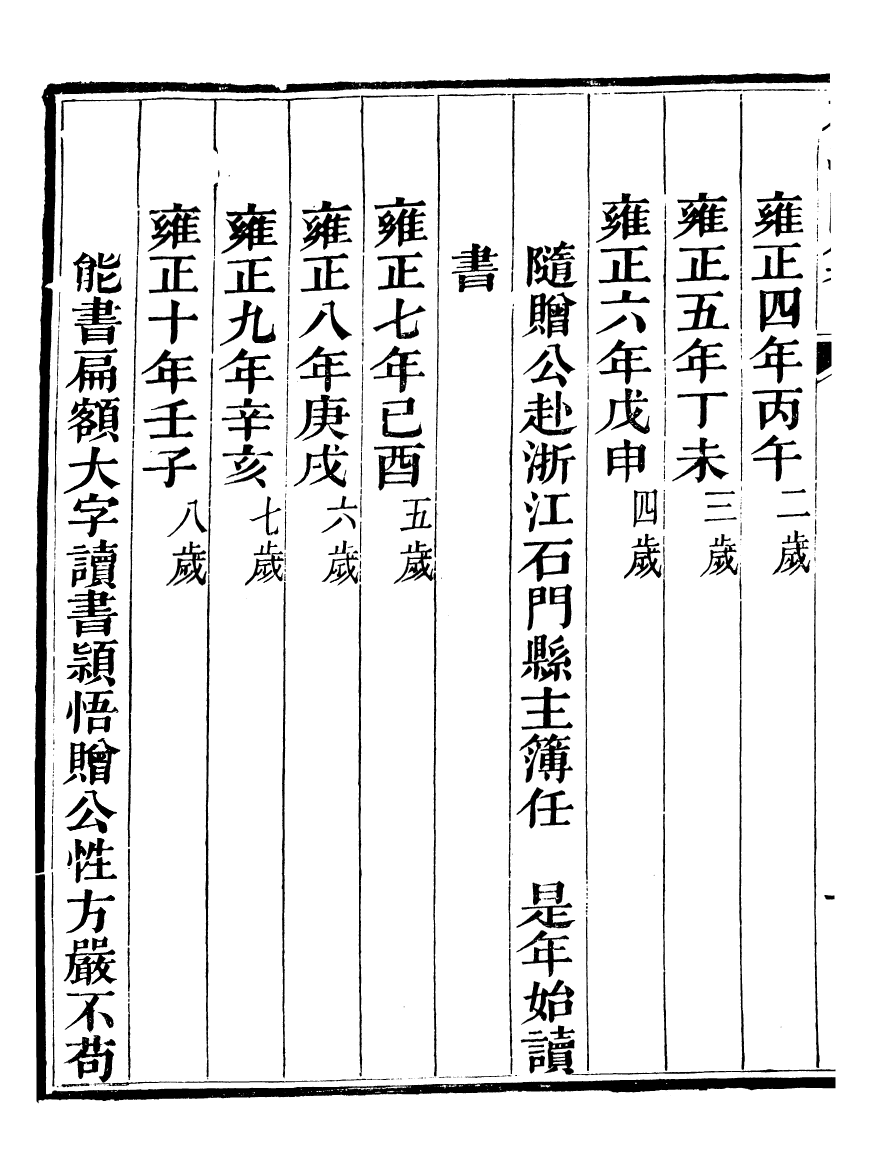 雍正四年丙午二歲
雍正五年丁未三歲
雍正六年戊申四歲
隨贈公赴浙江石門縣主簿任　是年始讀
書
雍正七年己酉五歲
雍正八年庚戌六歲
雍正九年辛亥七歲
雍正十年壬子八歲
能書扁額大字讀書潁悟贈公性方嚴不苟